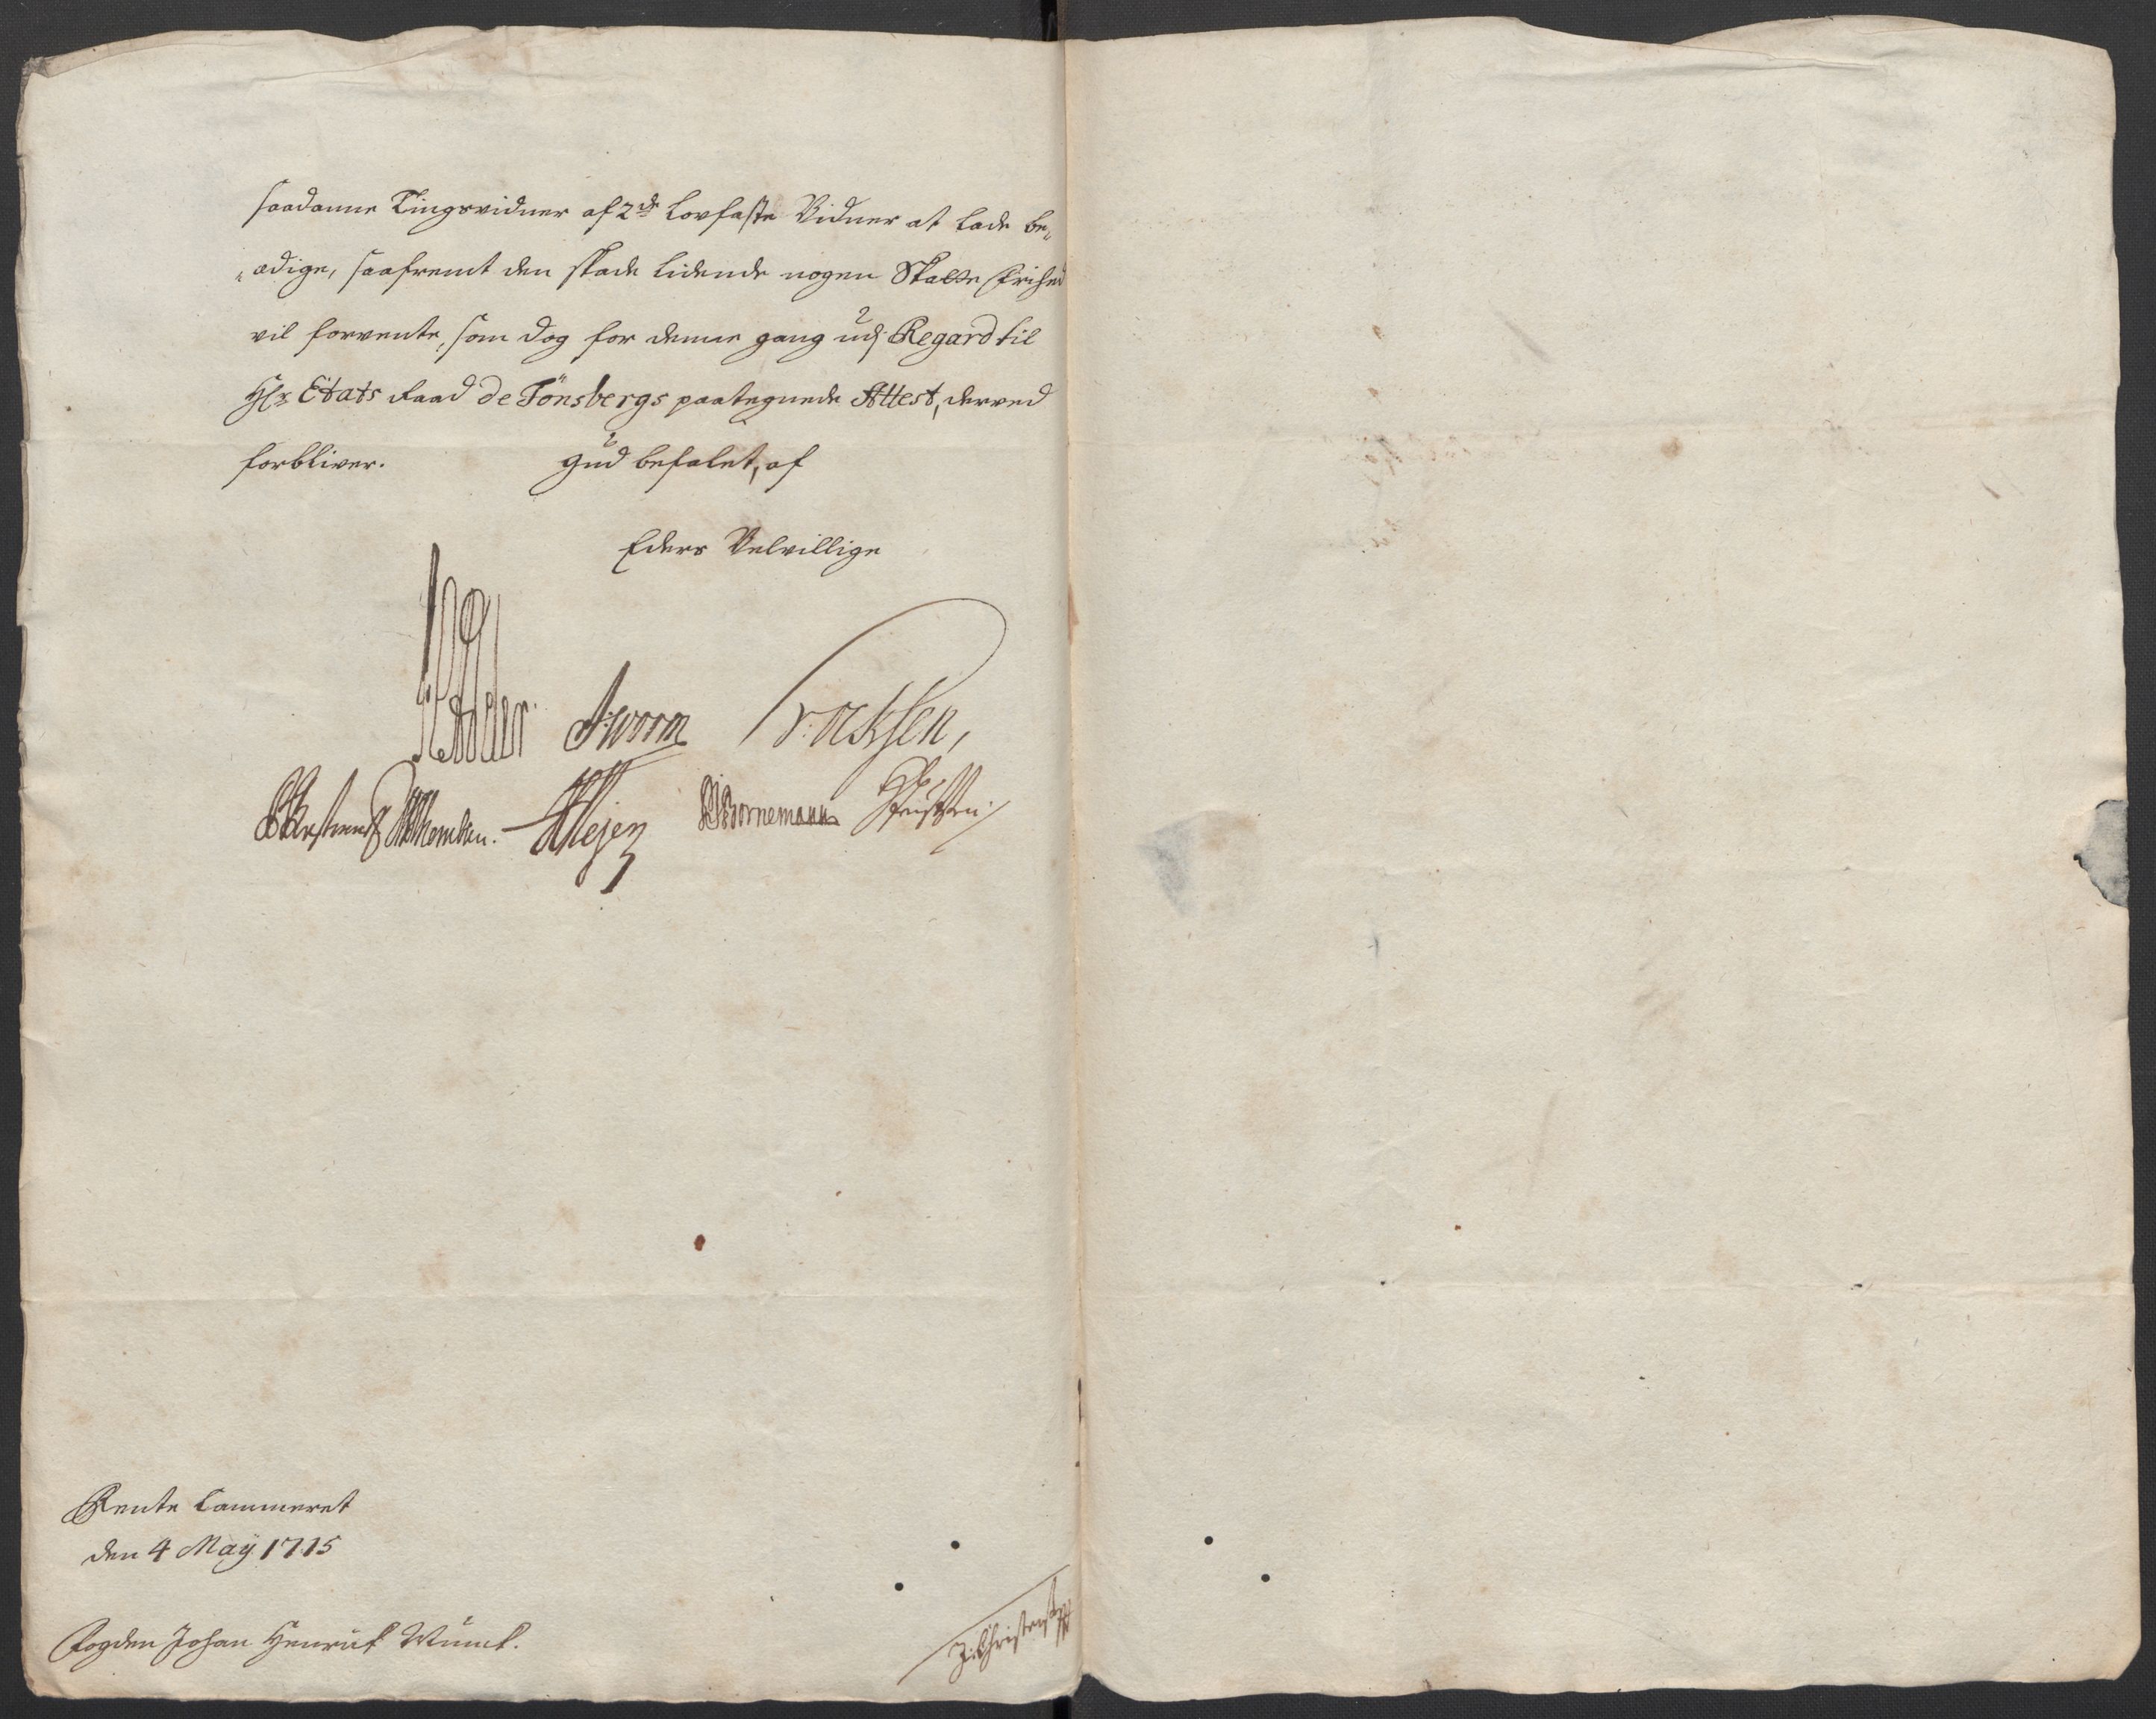 saadanne Tingsvidner af 2de Lovfaste Vidner at lade be„
„ædige, saafremt den skade lidende nogen Skatte Frihed
vil forvente, som dog for denne gang udj Regard til
Hr Etats Raad de Tönsbergs paategnede Attest, derved
forbliver. Gud befalet, af
Eders Velvillige
Worm
Bornemann
Rente Cammeret
den 4 May 1715
Fogden Johan Henrick Wünck.